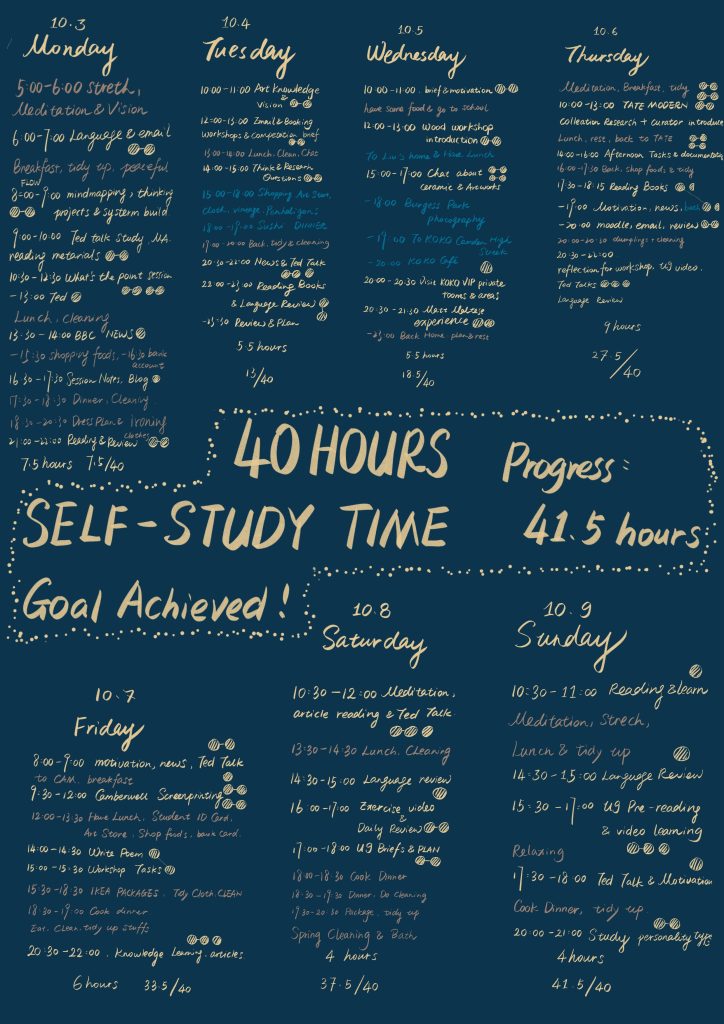 10.3
Monday
5:00-6:00 streth,
Meditation & Vision
6:00-7:00 Language & email
Breakfast, tidy up, peaceful
FLOW
8:00-9:00 mindmapping, thinking
projects & systerm build
9:00-10:00 Ted talk study, NA.
reading metarials
10:30-12:30 What's the point session
-13:00 Ted
Lunch, Cleaning
13:30-14:00 BBC NEWS
-15:30 shopping foods, -16:30 bank
account
16:30-17:30 Session Notes, Blog
17:30-18:30 Dinner, Cleaning
18:30-20:30 Dress Plan & ironing
clothes
21:00-22:00 Reading & Review
7.5 hours 7.5/40
10.4
Tuesday
10:00-11:00 Art Knowledge
&
Vision
12:00-13:00 Email & Booking
Workshops & competation brief
13:00-14:00 Lunch, Clean, Chat
14:00-15:00 Think & Research
Questions
15:00-18:00 Shopping Art Store,
Cloth, vintage, Penhaligons
18:00-19:00 Sushi DINNER
19:00-20:00 Back, tidy & cleaning
20:30-22:00 News & Ted Talk
22:00-23:00 Reading Books
& Language Review
-23:30 Review & Plan
5.5 hours
13/40
10.5
Wednesday
10:00-11:00, brief & motivation
have some food & go to school
12:00-13:00 Wood workshop
introduction
To Liu's home & Have Lunch
15:00-17:00 Chat about
ceramic & Artworks
-18:00 Burgess Park
photography
-19:00 To KOKO Camden High
Street
-20:00 KOKO Café
20:00-20:30 Visit KOKO VIP private
rooms & areas
20:30-21:30 Matt Maltese
experience
-23:00 Back Home plan & rest
5.5 hours
18.5/40
10.6
Thursday
Meditation, Breakfast, tidy
10:00-13:00 TATE MODERN
colleation Research + curator introduce
Lunch, rest, back to TATE
14:00-16:00 Afternoon Tasks & documentary
16:00-17:30 Back, shop foods & tidy
17:30-18:15 Reading Books
-19:00 Motivation, news, bath
-20:00 moodle, email, review
20:00-20:30 dumplings + cleaning
20:30-22:00
reflection for workshop, U9 video,
Ted Talks
Language Review
9 hours
27.5/40
40 HOURS
SELF-STUDY TIME
Goal Achieved!
Progress:
41.5 hours
10.7
Friday
8:00-9:00 motivation, news, Ted Talk
to CAM, breakfast
9:30-12:00 Camberwell Screenprinting
12:00-13:30 Have Lunch, Student ID Card,
Art Store, Shop foods, bank card.
14:00-14:30 Write Poem
15:00-15:30 Workshop Tasks
15:30-18:30 IKEA PACKAGES, Tidy Cloth, CLEAN
18:30-19:00 Cook dinner
Eat, Clean, tidy up stuffs
20:30-22:00, Knowledge Learning, articles
6 hours 33.5/40
10.8
Saturday
10:30-12:00 Meditation,
article reading & Ted Talk
13:30-14:30 Lunch, Cleaning
14:30-15:00 Language review
16:00-17:00 Exercise video
&
Daily Review
17:00-18:00 U9 Briefs & PLAN
18:00-18:30 Cook Dinner
18:30-19:30 Dinner, Do Cleaning
19:30-20:30 Package, tidy up
Spring Cleaning & Bath
4 hours
37.5/40
10.9
Sunday
10:30-11:00 Reading & learn
Meditation, Strech,
Lunch & tidy up
14:30-15:00 Language Review
15:30-17:00 U9 Pre-reading
& video learning
Relaxing
17:30-18:00 Ted Talk & Motivation
Cook Dinner, tidy up
20:00-21:00 Study personality type
4 hours
41.5/40